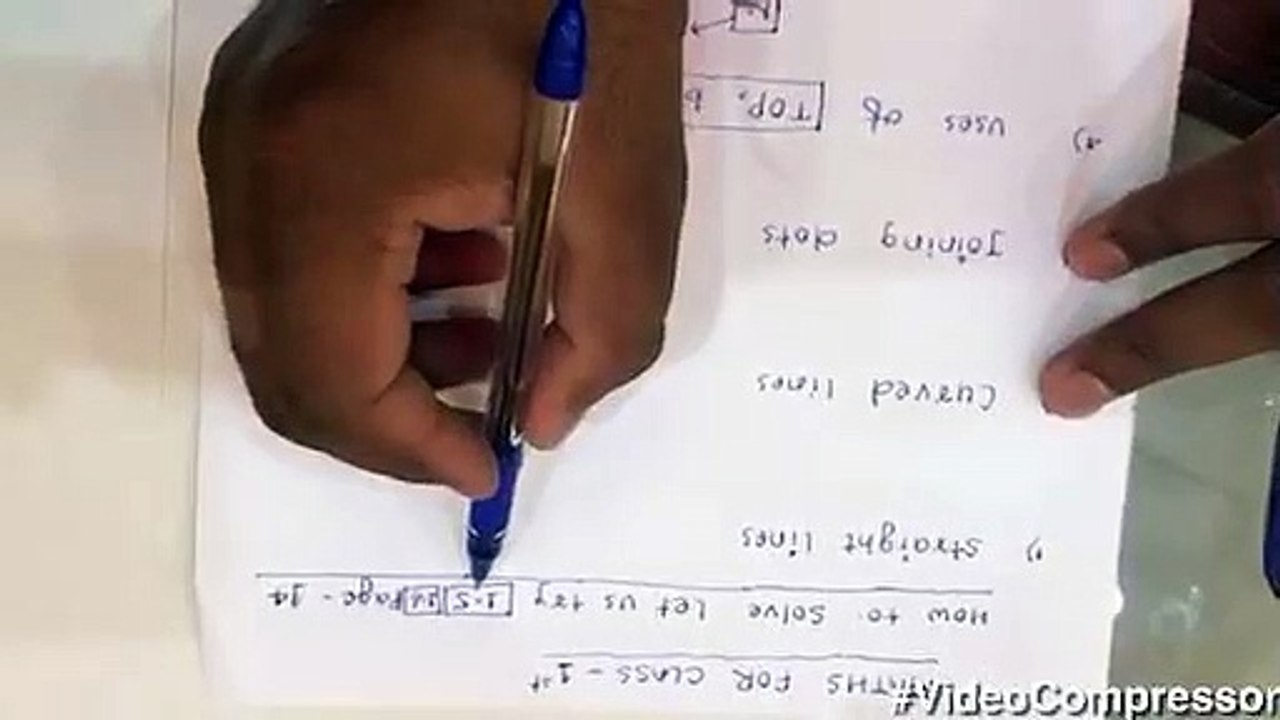 MATHS FOR CLASS - 1st
How to solve Let us try 1.5 Page - 14
1) Straight lines
Curved lines
Joining dots
Uses of TOP, b
#VideoCompressor